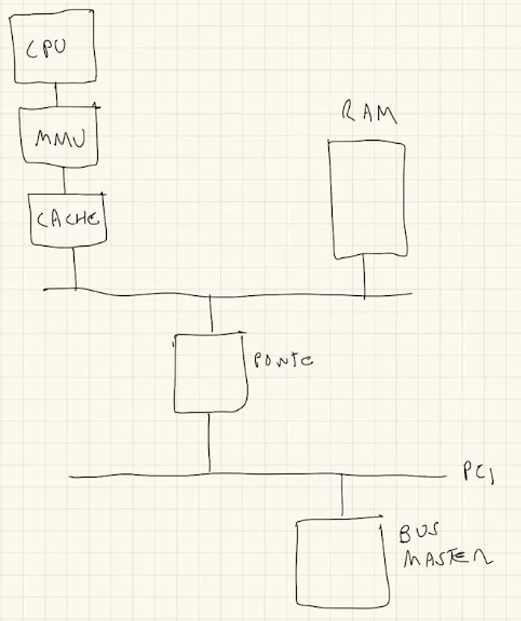 CPU
MMU
CACHE
RAM
PONTE
PCI
BUS
MASTER